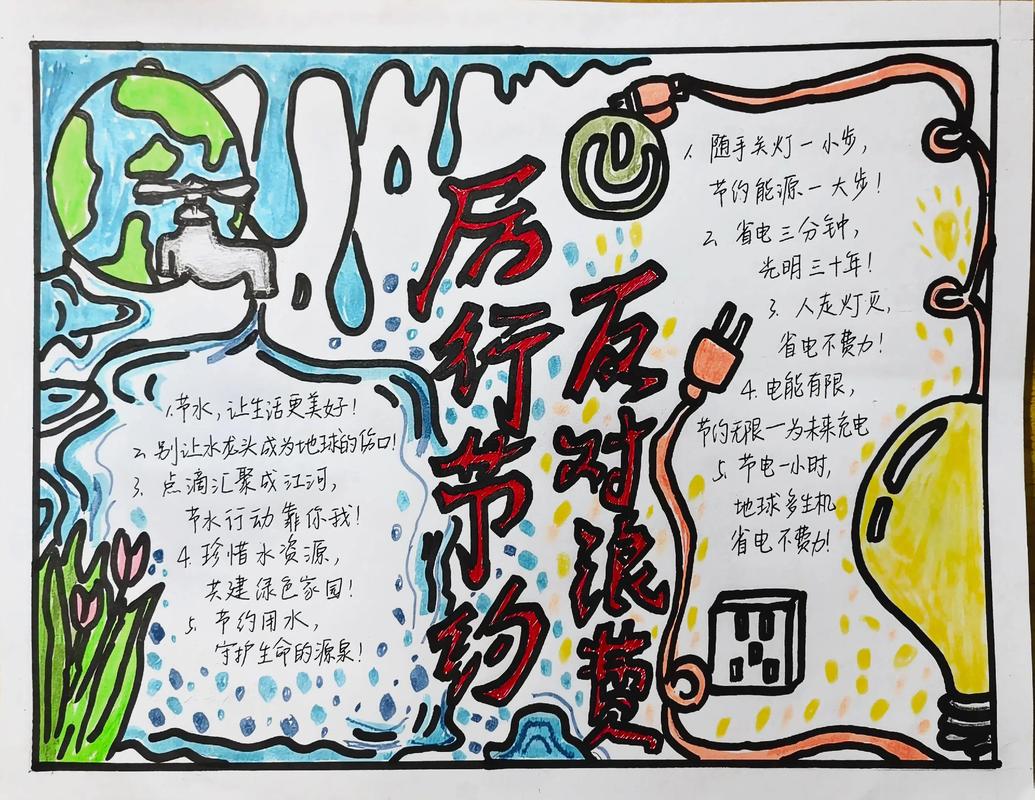 厉行节约
反对浪费
1.节水,让生活更美好!
2.别让水龙头成为地球的伤口!
3.点滴汇聚成江河,
节水行动靠你我!
4.珍惜水资源,
共建绿色家园!
5.节约用水,
守护生命的源泉!
1.随手关灯一小步,
节约能源一大步!
2.省电三分钟,
光明三十年!
3.人走灯灭,
省电不费力!
4.电能有限,
节约无限一为未来充电
5.节电一小时,
地球多生机
省电不费力!